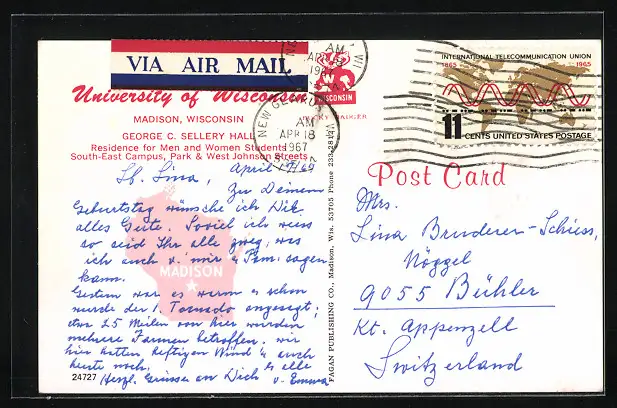 VIA AIR MAIL
University of Wisconsin
MADISON, WISCONSIN
GEORGE C. SELLERY HALL
Residence for Men and Women Students
South-East Campus, Park & West Johnson Streets
WISCONSIN
BUCKY BADGER
AM
APR 18
1967
NEW GLARUS
AM
APR 18
1967
INTERNATIONAL TELECOMMUNICATION UNION
1865 1965
11 CENTS UNITED STATES POSTAGE
Post Card
April 17/67
Lb. Lina,
Zu Deinem
Geburtstag wünsche ich Dir
alles Gute. Soviel ich weis
so seid Ihr alle zweg, was
ich auch v. mir & Fam. sagen
kann.
Gestern war es warm & schon
wurde der 1. Tornado angesagt;
etwa 25 Meilen von hier wurden
mehrere Farmen betroffen. wir
hier hatten heftigen Wind & auch
heute noch. & alle
Herzl. Grüsse an Dich v. Emma
MADISON
24727
FAGAN PUBLISHING CO., Madison, Wis. 53705 Phone 233-2814
Mrs.
Lina Bruderer-Schiess,
Nöggel
9055 Bühler
Kt. Appenzell
Switzerland